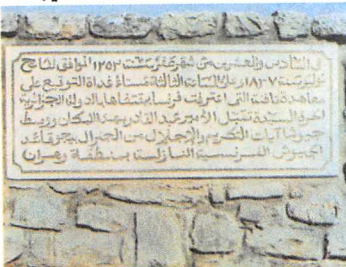 في السادس والعشرين من شهر صفر سنة ١٢٥٣ الموافق لفاتح
يونيو سنة ١٨٣٧ وعلى الساعة الثالثة مساء غداة التوقيع على
معاهدة تافنة التي اعترفت فرنسا بمقتضاها بالدولة الجزائرية
الحرة السيدة تقبل الأمير عبد القادر بهذا المكان وزيط
جيوشه آيات التكريم والإجلال من الجنرال بيجو قائد
الجيوش الفرنسية النازلة بمنطقة وهران